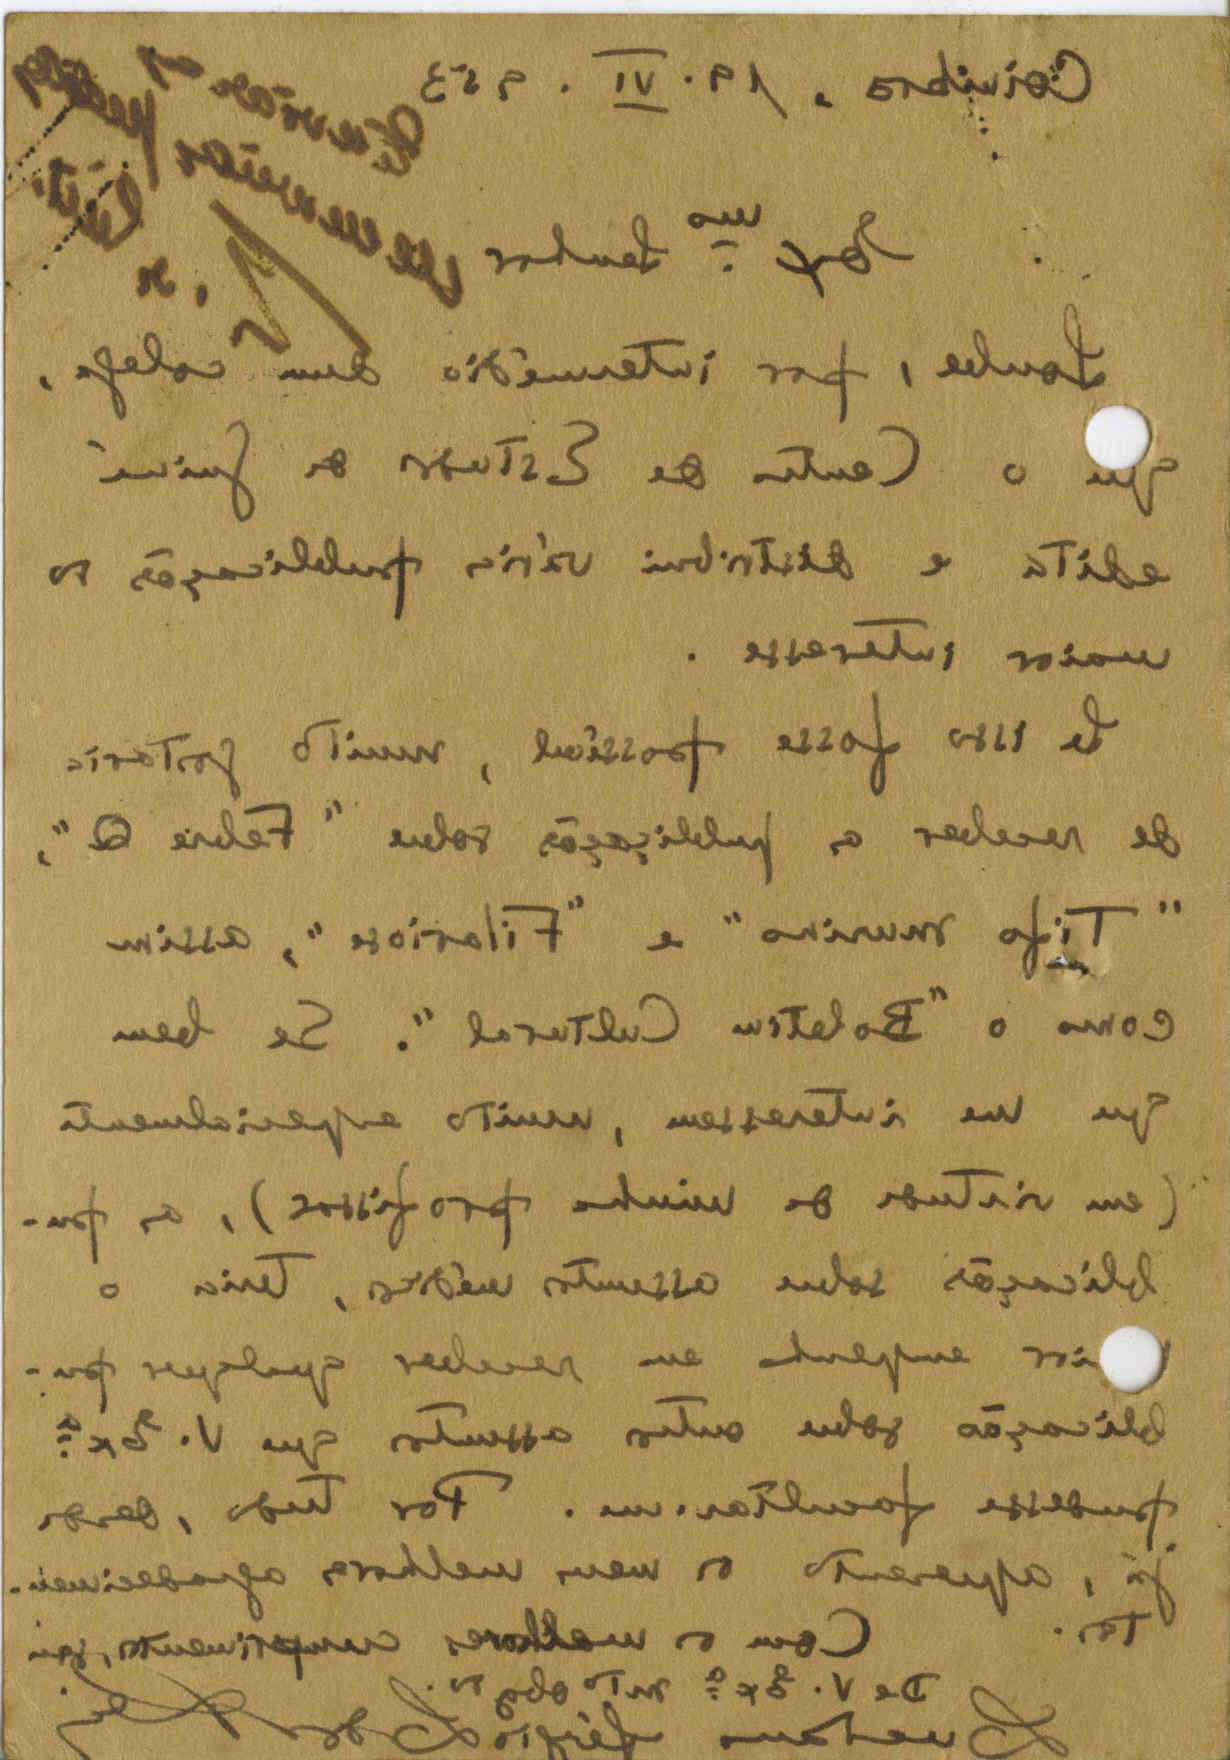 Coimbra, 19. VI. 953
Enviar as
que houver
Exmo. Senhor
Soube, por intermédio dum colega,
que o Centro de Estudos da Guiné
edita e distribui várias publicações do
maior interesse.
Se isso fosse possível, muito gostaria
de receber as publicações sobre "Febre Q",
"Tifo murino" e "Filariose", assim
como o "Boletim Cultural". Se bem
que me interessem, muito especialmente
(em virtude da minha profissão), as pu-
blicações sobre assuntos médicos, teria o
maior empenho em receber qualquer pu-
blicação sobre outros assuntos que V. Exª
pudesse facultar-me. Por tudo, desde
já, apresento os meus melhores agradecimen-
tos.
Com os melhores cumprimentos, sou
De V. Exª mto obgdo.